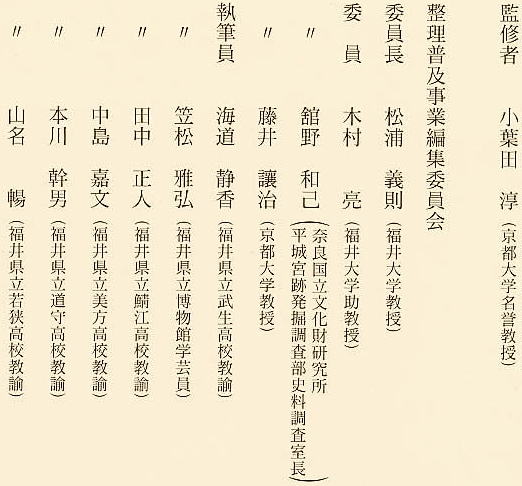 監修者　小葉田　淳（京都大学名誉教授）
整理普及事業編集委員会
委員長　松浦　義則（福井大学教授）
委　員　木村　　亮（福井大学助教授）
〃　　舘野　和己（奈良国立文化財研究所
平城宮跡発掘調査部史料調査室長）
〃　　藤井　讓治（京都大学教授）
執筆員　海道　静香（福井県立武生高校教諭）
〃　　笠松　雅弘（福井県立博物館学芸員）
〃　　田中　正人（福井県立鯖江高校教諭）
〃　　中島　嘉文（福井県立美方高校教諭）
〃　　本川　幹男（福井県立道守高校教諭）
〃　　山名　　暢（福井県立若狭高校教諭）